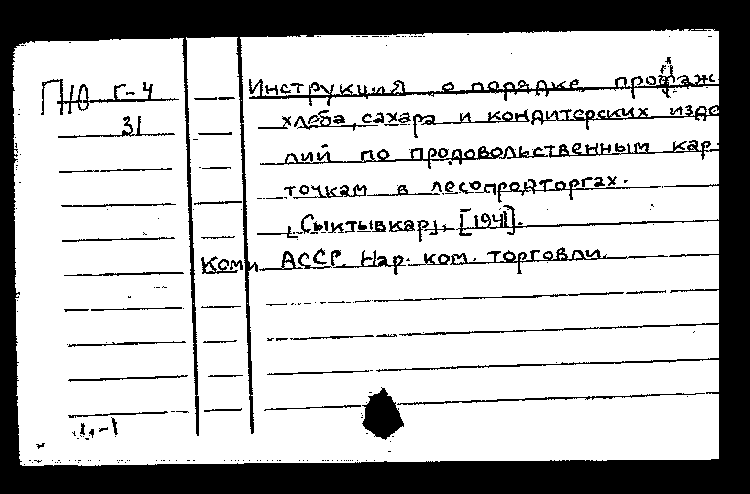 ПЮ Г-4
31
Инструкция о порядке продаж
хлеба, сахара и кондитерских изде
лий по продовольственным кар-
точкам в леспродторгах.
[Сыктывкар], [1941].
Коми АССР. Нар. ком. торговли.